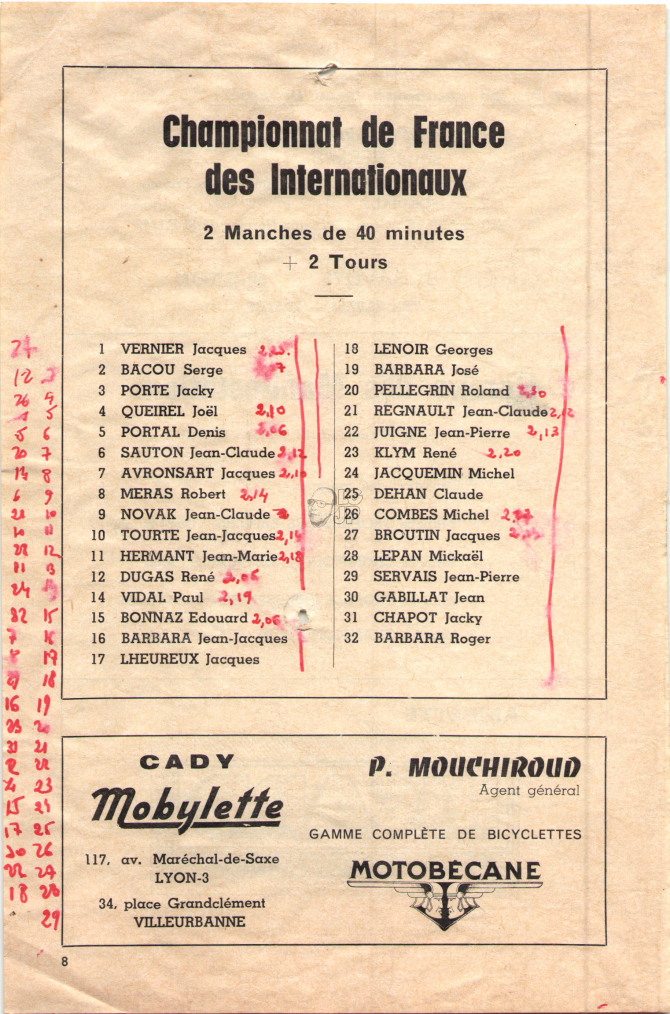 Championnat de France
des Internationaux
2 Manches de 40 minutes
+ 2 Tours
1 VERNIER Jacques
2 BACOU Serge
3 PORTE Jacky
4 QUEIREL Joël 2,10
5 PORTAL Denis 2,06
6 SAUTON Jean-Claude 2,12
7 AVRONSART Jacques 2,10
8 MERAS Robert 2,14
9 NOVAK Jean-Claude
10 TOURTE Jean-Jacques
11 HERMANT Jean-Marie 2,18
12 DUGAS René 2,06
14 VIDAL Paul 2,19
15 BONNAZ Edouard 2,06
16 BARBARA Jean-Jacques
17 LHEUREUX Jacques
18 LENOIR Georges
19 BARBARA José
20 PELLEGRIN Roland
21 REGNAULT Jean-Claude
22 JUIGNE Jean-Pierre 2,13
23 KLYM René 2,20
24 JACQUEMIN Michel
25 DEHAN Claude
26 COMBES Michel
27 BROUTIN Jacques
28 LEPAN Mickaël
29 SERVAIS Jean-Pierre
30 GABILLAT Jean
31 CHAPOT Jacky
32 BARBARA Roger
12
26 4
5
6
20 7
8
6 9
10
12
24
15
7 16
17
18
16 19
21
23
15
17 25
26
18
29
CADY
Mobylette
117, av. Maréchal-de-Saxe
LYON-3
34, place Grandclément
VILLEURBANNE
P. MOUCHIROUD
Agent général
GAMME COMPLÈTE DE BICYCLETTES
MOTOBÉCANE
8